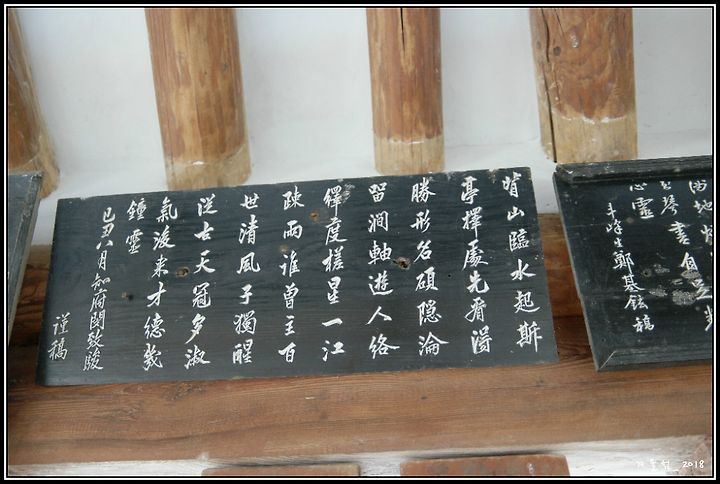 滿地
琴書自足
心靈
斗峰生鄭基鉉稿
背山臨水起斯
亭擇處先看淂
勝形名碩隠淪
留澗軸遊人絡
繹度槎星一江
疎雨誰曾主百
世清風子獨醒
從古天冠多淑
氣後来才德幾
鍾靈
己丑八月知府閔致駿
謹稿
2018